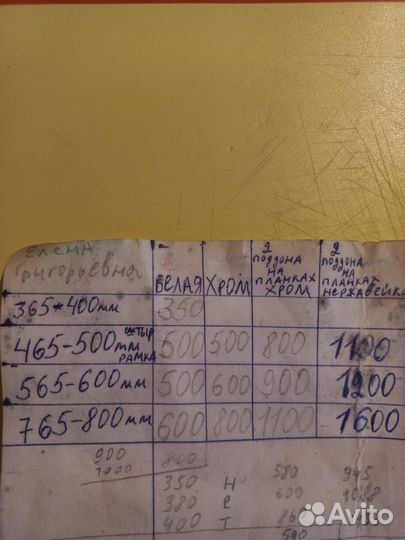 Елена Григорьевна
БЕЛАЯ ХРОМ 2 ПОДДОНА НА ПЛАНКАХ ХРОМ 2 ПОДДОНА НА ПЛАНКАХ НЕРЖАВЕЙКА
365*400мм 350
465-500мм РАМКА 500 500 800 1100
565-600мм 500 600 900 1200
765-800мм 600 800 1100 1600
900 800
1000
350 Н 580 945
380 е 600 1088
400 Т
500
Avito